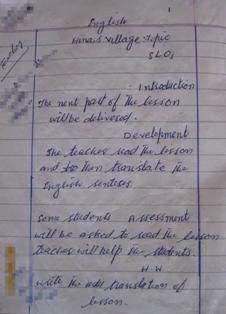 English
Hina's Village Topic
SLO,
: Introduction
The next part of the lesson
will be delivered.
Development
The teacher read the lesson
and then translate the
English sentises.
Some students Assessment
will be asked to read the lesson
teacher will help the students.
H.W
write the translation of
lesson.